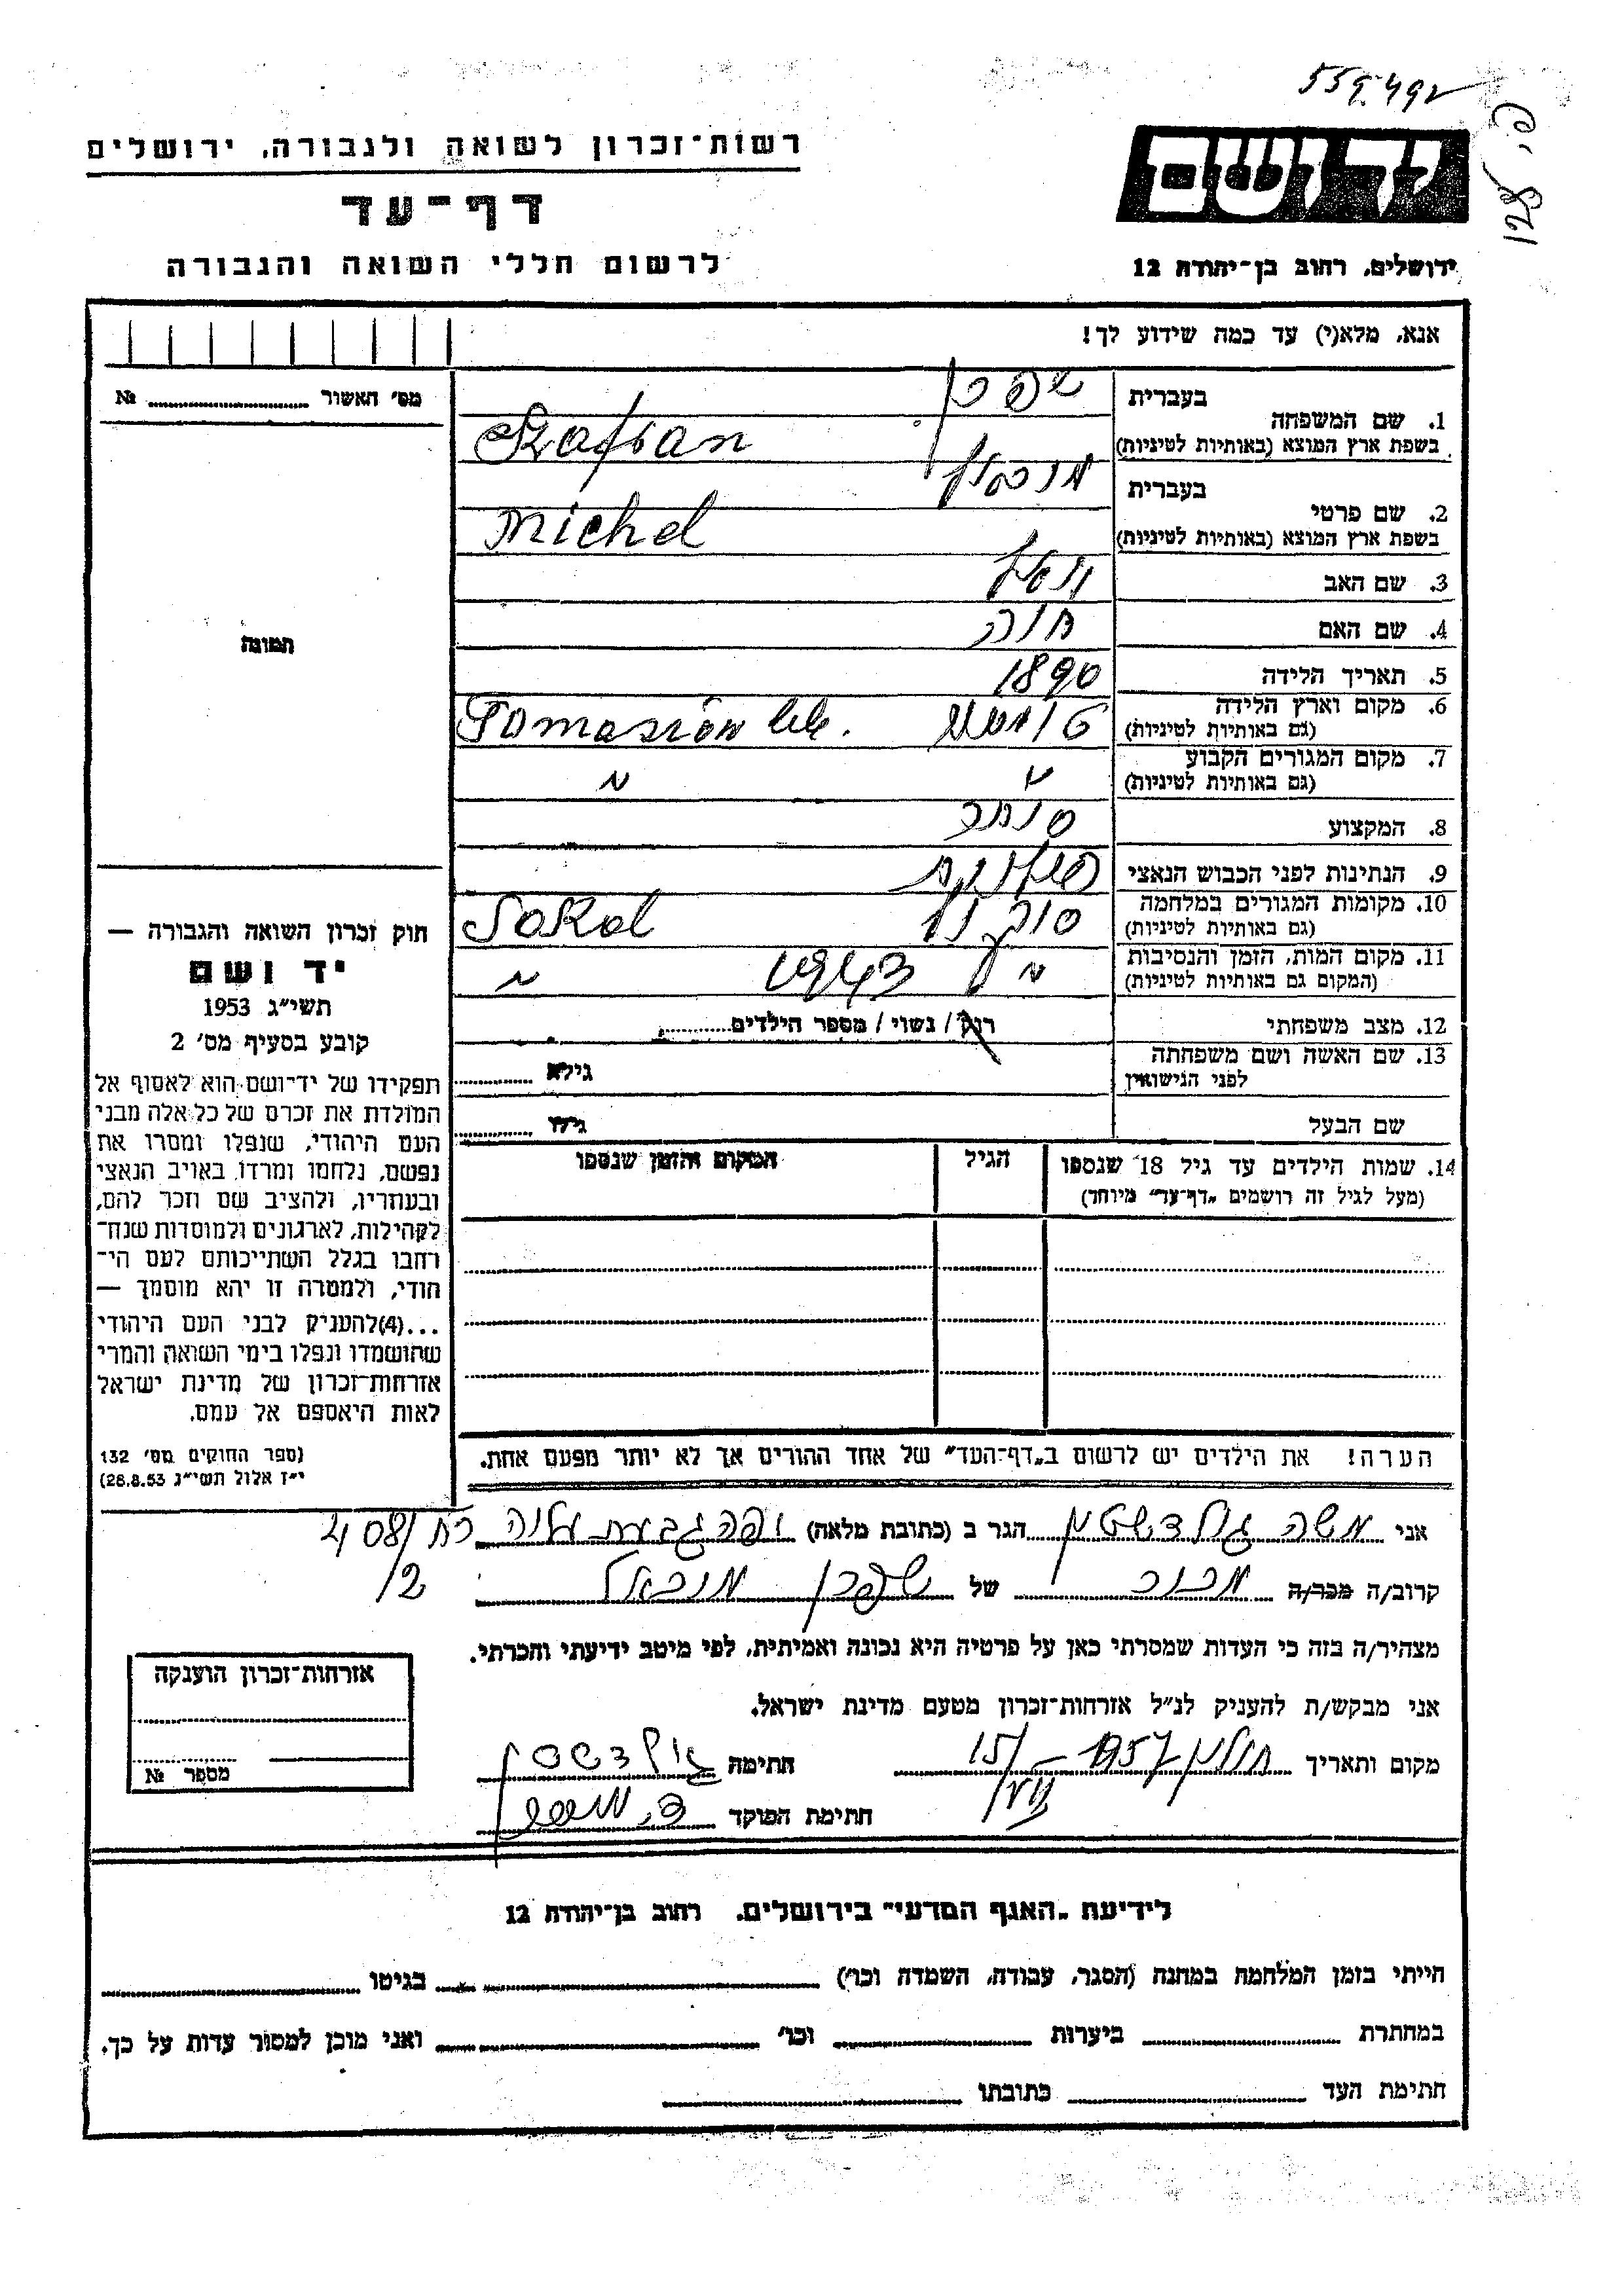 559492
רשות־זכרון לשואה ולגבורה, ירושלים
דף־עד
לרשום חללי השואה והגבורה
יד ושם
ירושלים, רחוב בן־יהודה 12
אנא, מלא(י) עד כמה שידוע לך!
מס' האשור № 
1. שם המשפחה
בעברית שפרן
בשפת ארץ המוצא (באותיות לטיניות) Szafran
2. שם פרטי
בעברית מיכאל
בשפת ארץ המוצא (באותיות לטיניות) Michel
3. שם האב
4. שם האם חוה
5. תאריך הלידה 1890
6. מקום וארץ הלידה
(גם באותיות לטיניות) Tomaszów lub.
7. מקום המגורים הקבוע
(גם באותיות לטיניות) " "
8. המקצוע סוחר
9. הנתינות לפני הכבוש הנאצי פולנית
10. מקומות המגורים במלחמה
(גם באותיות לטיניות) סוקל Sokal
11. מקום המות, הזמן והנסיבות
(המקום גם באותיות לטיניות) " 1943 "
12. מצב משפחתי רוק / נשוי / מספר הילדים
13. שם האשה ושם משפחתה
לפני הנישואין
גילה
שם הבעל גילו
14. שמות הילדים עד גיל 18 שנספו
(מעל לגיל זה רושמים „דף־עד" מיוחד)
הגיל
המקום והזמן שנספו
תמונה
חוק זכרון השואה והגבורה —
יד ושם
תשי"ג 1953
קובע בסעיף מס' 2
תפקידו של יד־ושם הוא לאסוף אל
המולדת את זכרם של כל אלה מבני
העם היהודי, שנפלו ומסרו את
נפשם, נלחמו ומרדו באויב הנאצי
ובעוזריו, ולהציב שם וזכר להם,
לקהילות, לארגונים ולמוסדות שנח־
רחבו בגלל השתייכותם לעם הי־
הודי, ולמטרה זו יהא מוסמך —
...(4)להעניק לבני העם היהודי
שהושמדו ונפלו בימי השואה והמרי
אזרחות־זכרון של מדינת ישראל
לאות היאספם אל עמם.
(ספר החוקים מס' 132
י"ז אלול תשי"ג 28.8.53)
הערה! את הילדים יש לרשום ב„דף־העד" של אחד ההורים אך לא יותר מפעם אחת.
אני משה גולדשטין הגר ב (כתובת מלאה) 408/2
קרוב/ה מכר/ה של שפרן מיכאל
מצהיר/ה בזה כי העדות שמסרתי כאן על פרטיה היא נכונה ואמיתית, לפי מיטב ידיעתי והכרתי.
אני מבקש/ת להעניק לנ"ל אזרחות־זכרון מטעם מדינת ישראל.
מקום ותאריך חולון 1957 חתימה גולדשטין
חתימת הפוקד
אזרחות־זכרון הוענקה
מספר №
לידיעת „האגף המדעי" בירושלים, רחוב בן־יהודה 12
הייתי בזמן המלחמה במחנה (הסגר, עבודה, השמדה וכו') בגיטו
במחתרת ביערות וכו' ואני מוכן למסור עדות על כך.
חתימת העד כתובתו